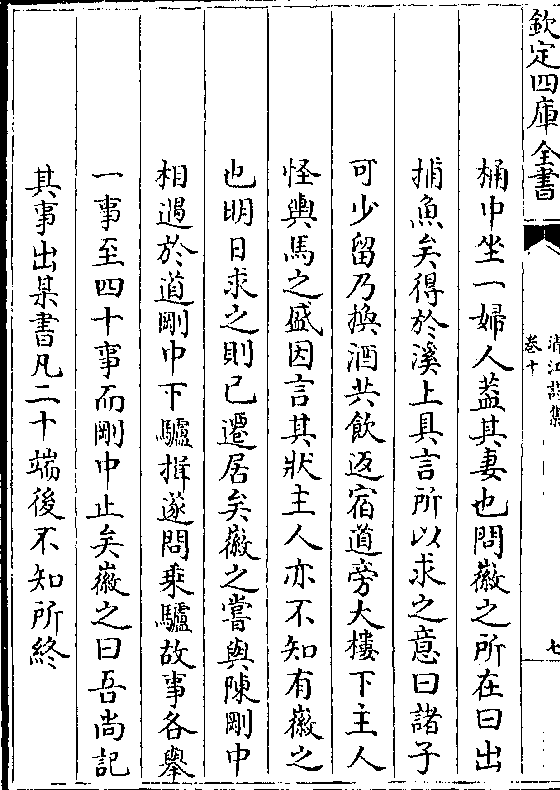 欽定四庫全書
清江詩集
卷十
七
桶中坐一婦人葢其妻也問㣲之所在曰出
捕魚矣得於溪上具言所以求之意曰諸子
可少留乃換酒共飲返宿道旁大樓下主人
怪輿馬之盛因言其狀主人亦不知有㣲之
也明日求之則已遷居矣㣲之嘗與陳剛中
相遇於道剛中下驢揖遂問乘驢故事各舉
一事至四十事而剛中止矣㣲之曰吾尚記
其事出某書凡二十端後不知所終